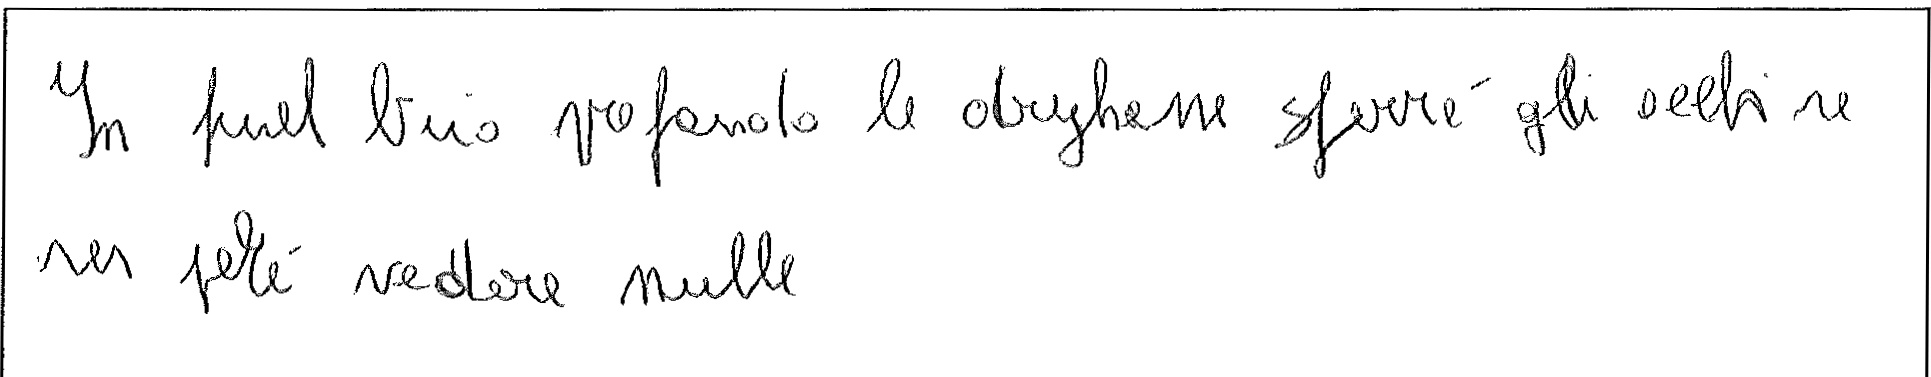 In quel buio profondo le draghesse sforzò gli occhi ne
non poté vedere nulla